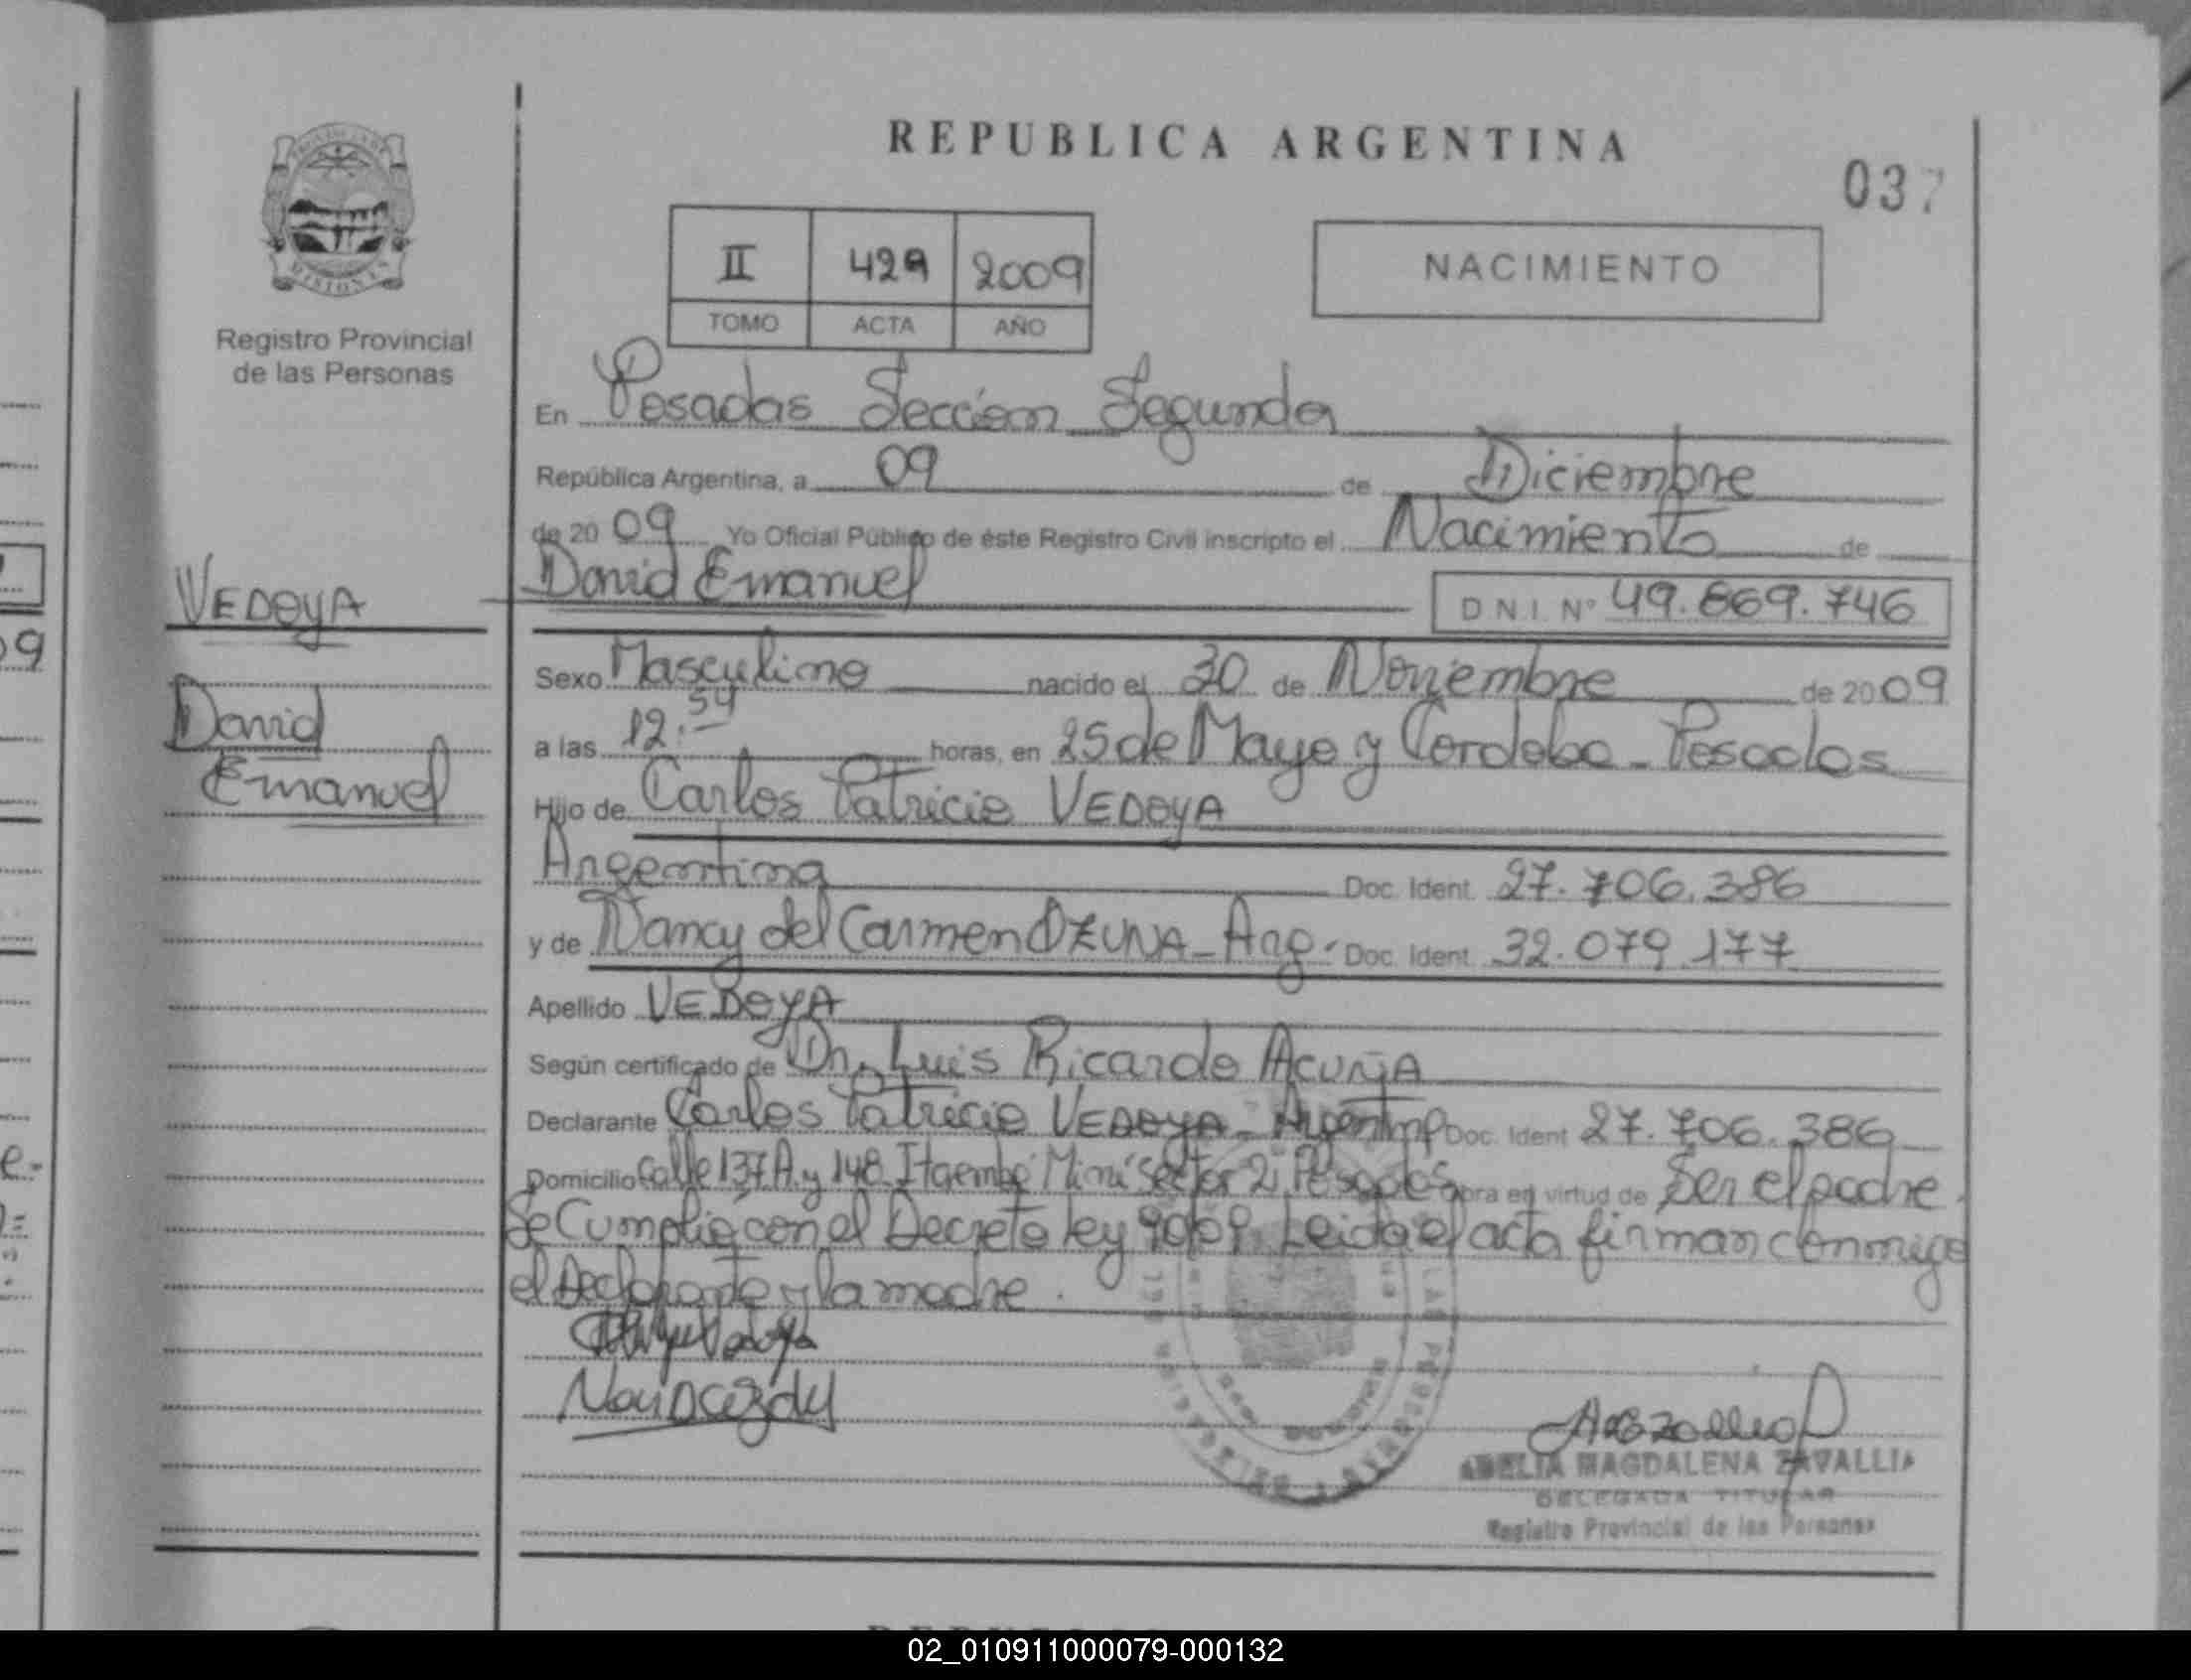 REPUBLICA ARGENTINA
037
II 429 2009
TOMO ACTA AÑO
NACIMIENTO
MISIONES
Registro Provincial
de las Personas
VEDOYA
David
Emanuel
En Posadas Seccion Segunda
República Argentina, a 09 de Diciembre
de 20 09 Yo Oficial Público de éste Registro Civil inscripto el Nacimiento de
David Emanuel D N.I. Nº 49.869.746
Sexo Masculino nacido el 30 de Noviembre de 20 09
a las 12.54 horas, en 25 de Mayo y Cordoba - Posadas
Hijo de Carlos Patricio VEDOYA
Argentina Doc. Ident. 27.706.386
y de Nancy del Carmen OZUNA - Arg. Doc. Ident. 32.079.177
Apellido VEDOYA
Según certificado de Dr. Luis Ricardo ACUÑA
Declarante Carlos Patricio VEDOYA - Argentino Doc. Ident 27.706.386
Domicilio Calle 137 A y 148 Itaembé Miní Sector 2 Posadas obra en virtud de Ser el padre.
Se Cumplio con el Decreto ley Leida el acta firman conmigo
el Declarante y la madre.
ADELIA MAGDALENA ZAVALLIA
DELEGADA TITULAR
Registro Provincial de las Personas
02_010911000079-000132